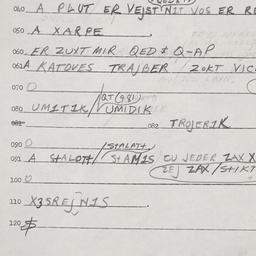 040 A PLUT ER VEJST NIT VOS ER RE
050 A XARPE
060 ER ZUXT MIR QED & Q-AP
061 A KATOVES TRAJBER / ZOKT VIC
070 O
QT (981)
080 UMITIK / UMIDIK
081
082 TROJERIK
090 O
/STALATT
091 A STALOTT / STAMIS CU JEDER ZAX X
ZEJ ZAX / STIKT
100 O
110 X3SREJNIS
120 $